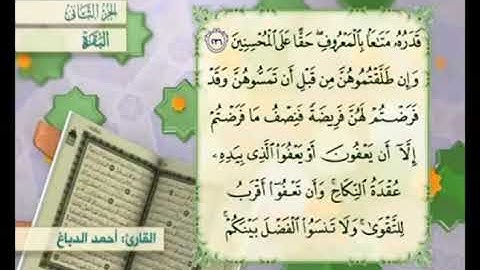 الجزء الثاني
البقرة
قَدَرُهُۥ مَتَٰعَۢا بِٱلْمَعْرُوفِۖ حَقًّا عَلَى ٱلْمُحْسِنِينَ ٢٣٦
وَإِن طَلَّقْتُمُوهُنَّ مِن قَبْلِ أَن تَمَسُّوهُنَّ وَقَدْ
فَرَضْتُمْ لَهُنَّ فَرِيضَةً فَنِصْفُ مَا فَرَضْتُمْ
إِلَّآ أَن يَعْفُونَ أَوْ يَعْفُوَا۟ ٱلَّذِى بِيَدِهِۦ
عُقْدَةُ ٱلنِّكَاحِۚ وَأَن تَعْفُوٓا۟ أَقْرَبُ
لِلتَّقْوَىٰۚ وَلَا تَنسَوُا۟ ٱلْفَضْلَ بَيْنَكُمْۚ
القارئ: أحمد الدباغ